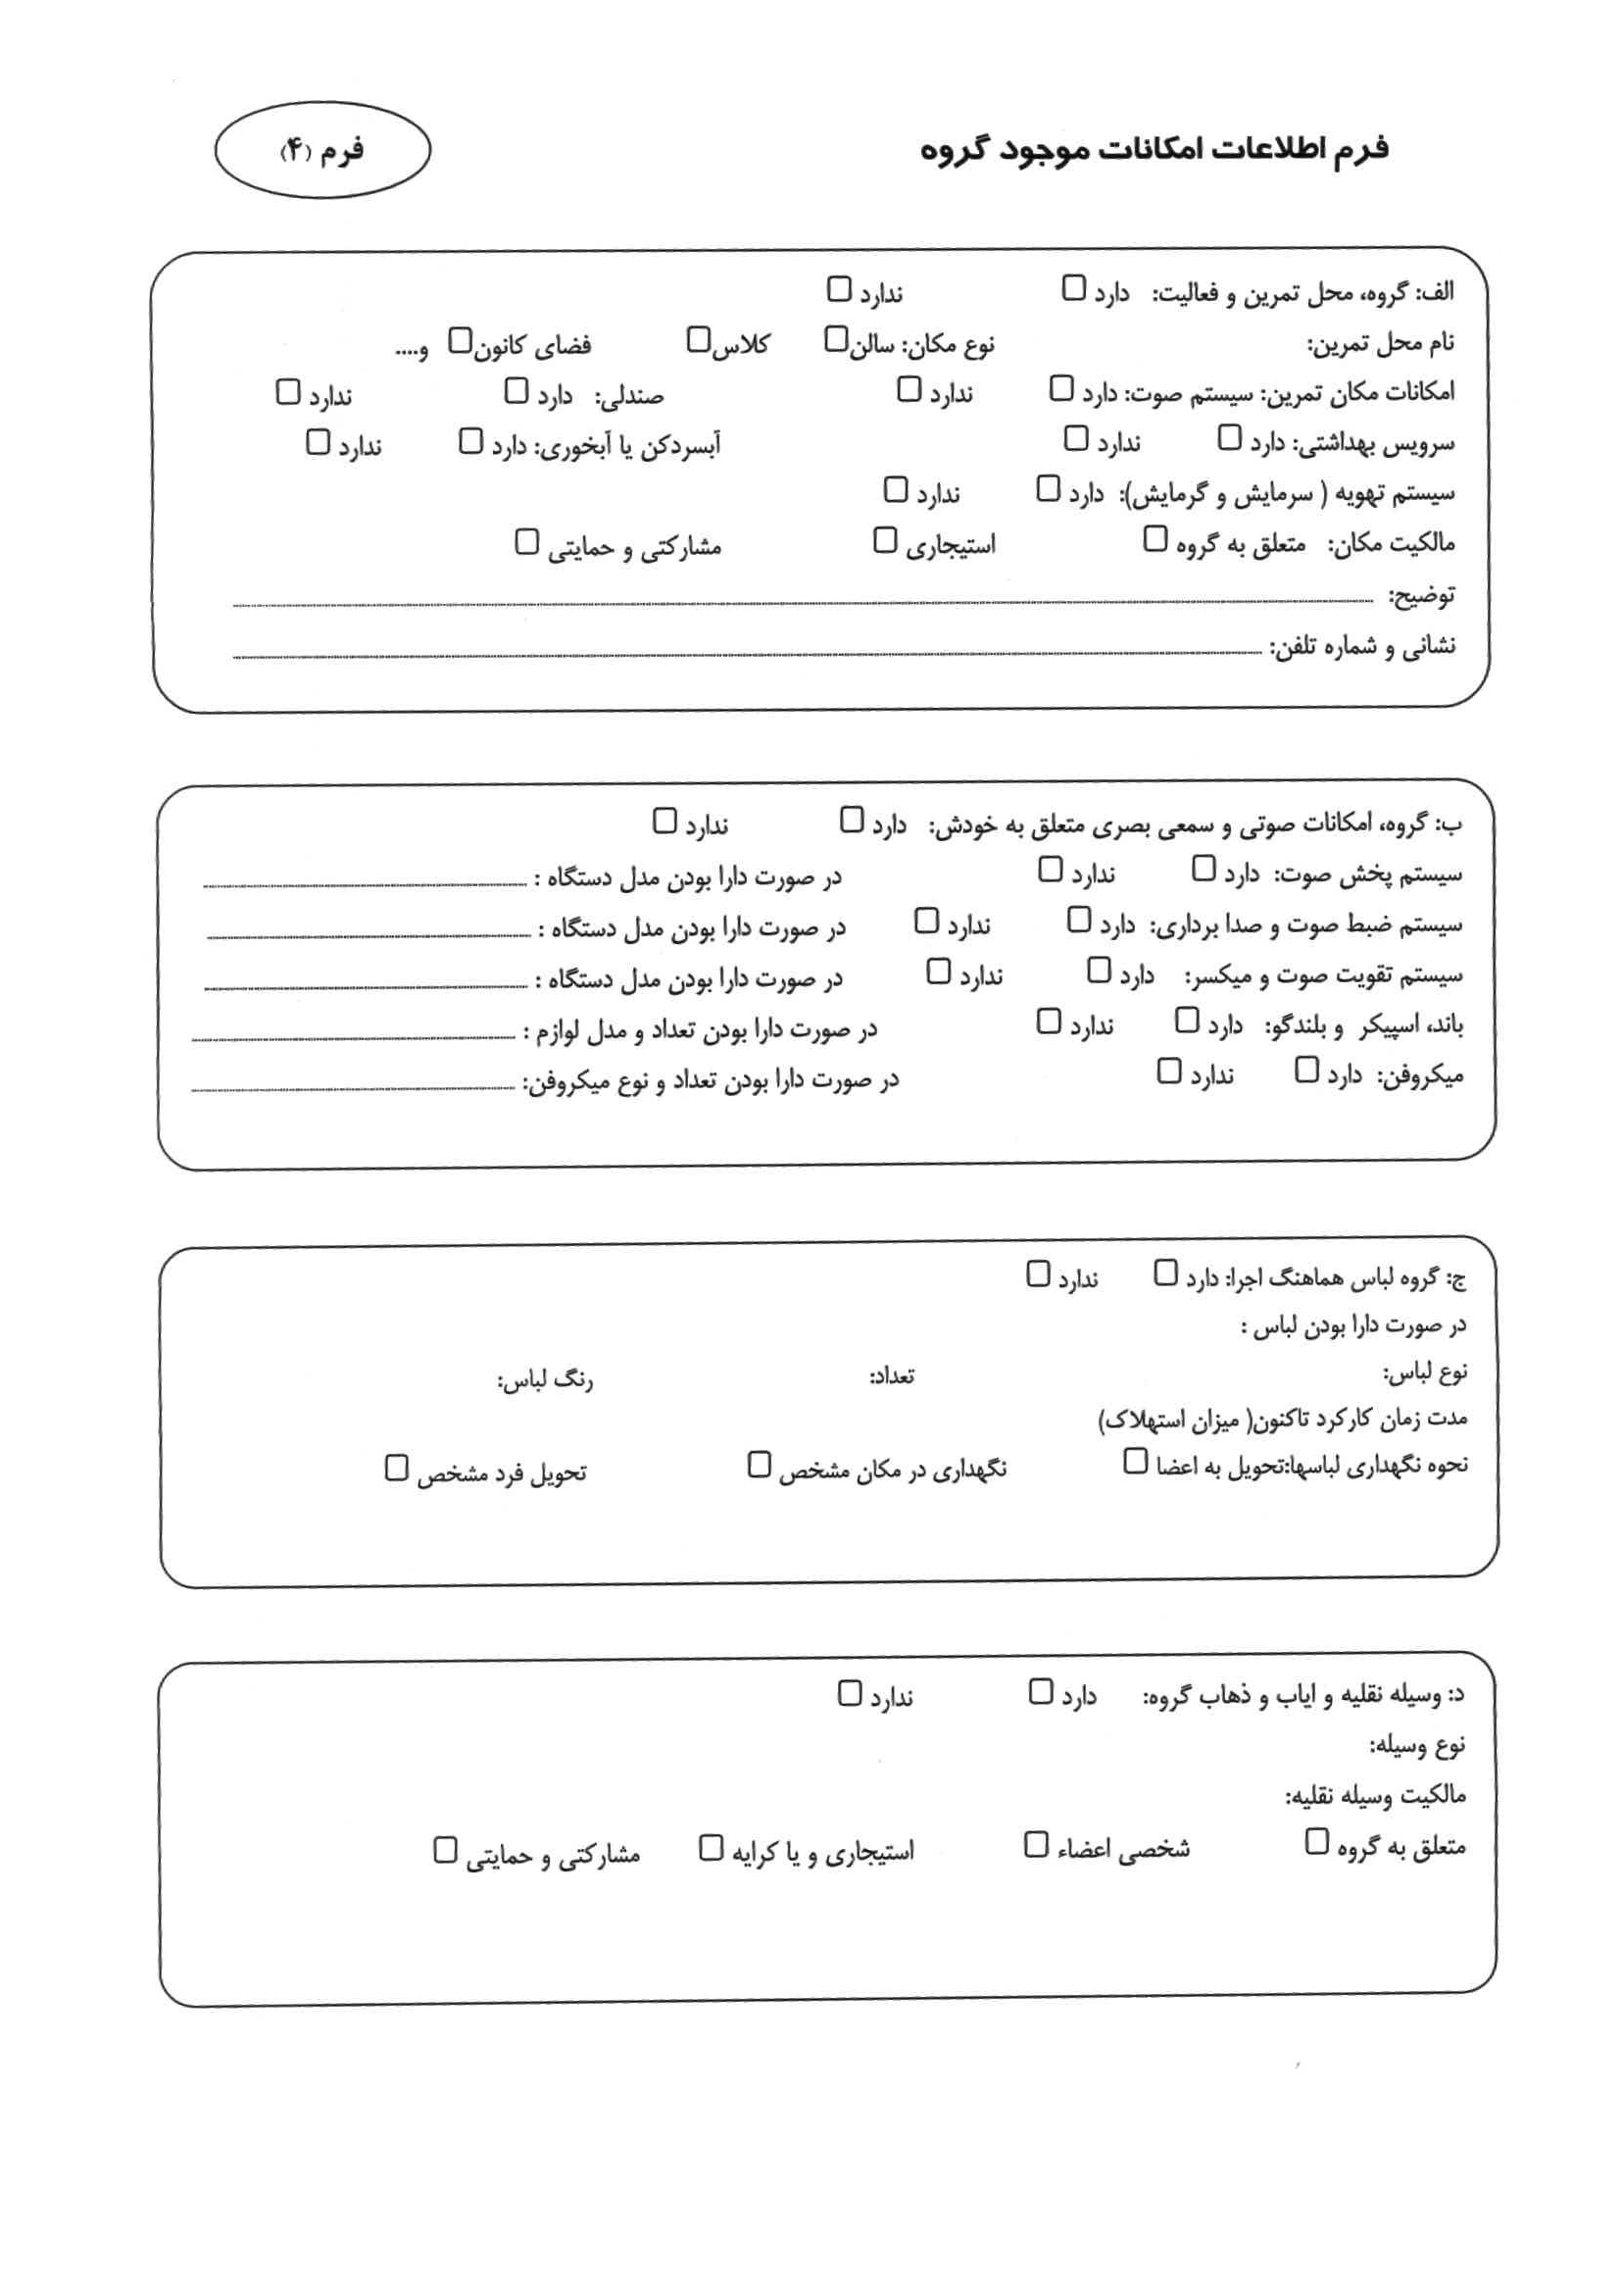 فرم اطلاعات امکانات موجود گروه
فرم (۴)
الف: گروه، محل تمرین و فعالیت: دارد □ ندارد □
نام محل تمرین: نوع مکان: سالن□ کلاس□ فضای کانون□ و....
امکانات مکان تمرین: سیستم صوت: دارد □ ندارد □ صندلی: دارد □ ندارد □
سرویس بهداشتی: دارد □ ندارد □ آبسردکن یا آبخوری: دارد □ ندارد □
سیستم تهویه ( سرمایش و گرمایش): دارد □ ندارد □
مالکیت مکان: متعلق به گروه □ استیجاری □ مشارکتی و حمایتی □
توضیح:
نشانی و شماره تلفن:
ب: گروه، امکانات صوتی و سمعی بصری متعلق به خودش: دارد □ ندارد □
سیستم پخش صوت: دارد □ ندارد □ در صورت دارا بودن مدل دستگاه :
سیستم ضبط صوت و صدا برداری: دارد □ ندارد □ در صورت دارا بودن مدل دستگاه :
سیستم تقویت صوت و میکسر: دارد □ ندارد □ در صورت دارا بودن مدل دستگاه :
باند، اسپیکر و بلندگو: دارد □ ندارد □ در صورت دارا بودن تعداد و مدل لوازم :
میکروفن: دارد □ ندارد □ در صورت دارا بودن تعداد و نوع میکروفن:
ج: گروه لباس هماهنگ اجرا: دارد □ ندارد □
در صورت دارا بودن لباس :
نوع لباس: تعداد: رنگ لباس:
مدت زمان کارکرد تاکنون( میزان استهلاک)
نحوه نگهداری لباسها:تحویل به اعضا □ نگهداری در مکان مشخص □ تحویل فرد مشخص □
د: وسیله نقلیه و ایاب و ذهاب گروه: دارد □ ندارد □
نوع وسیله:
مالکیت وسیله نقلیه:
متعلق به گروه □ شخصی اعضاء □ استیجاری و یا کرایه □ مشارکتی و حمایتی □